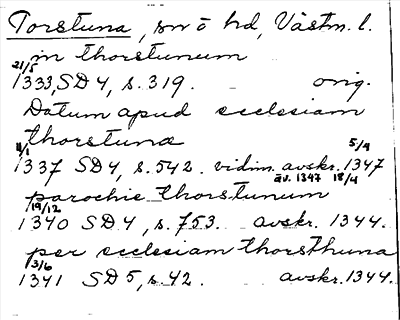 Torstuna, sn o hd, Västm. l.
in thorstunum
21/5
1333, SD 4, s. 319. orig.
Datum apud ecclesiam
thorstuna
11/1 5/4
1337 SD 4, s. 542. vidim. avskr. 1347
av. 1347 18/4
parochie thorstunum
19/12
1340 SD 4, s. 753. avskr. 1344.
per ecclesiam thorsthuna
3/6
1341 SD 5, s. 42. avskr. 1344.